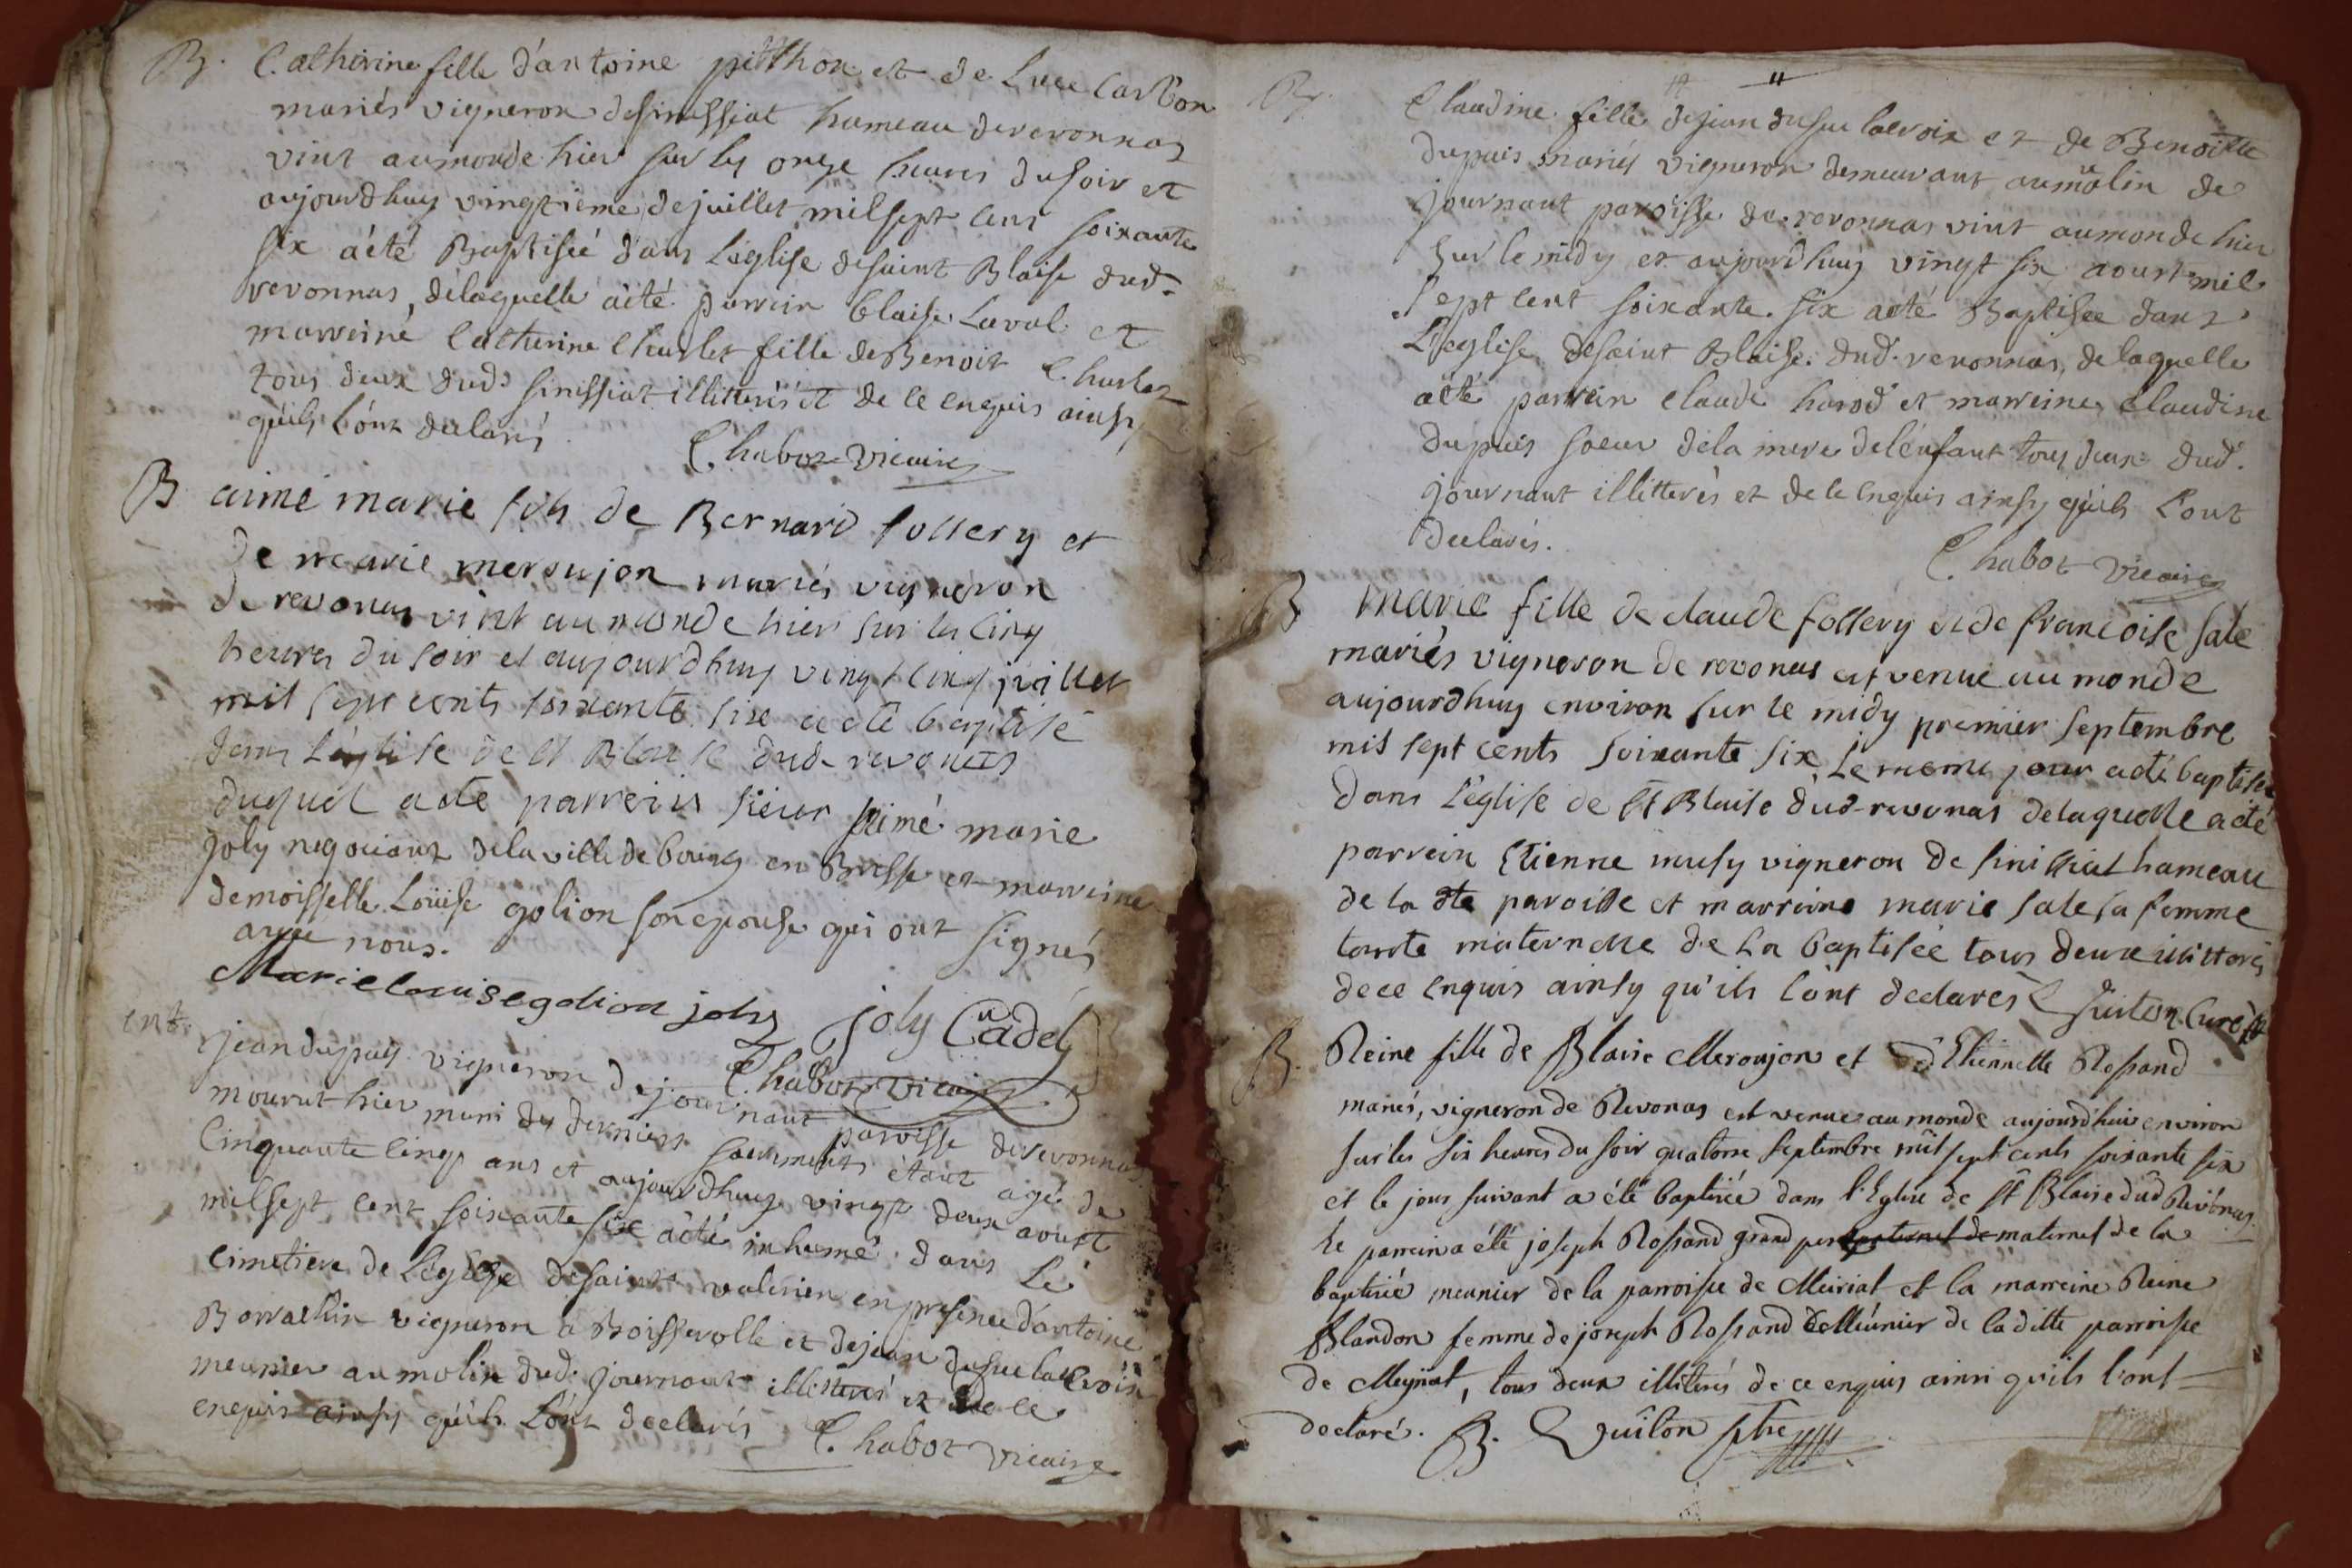 B. Catherine fille d'antoine pitthon et de Luce Carbon
mariés vigneron desinissiat hameau derevonnas
vint aumonde hier sur les onze heures dusoir et
aujourdhuy vingtieme dejuillet milsept cent soixante
six aété Baptisée dans L'église desaint Blaise dud.
revonnas, delaquelle aété parrein blaise Laval et
marreine Catherine Charlet fille deBenoit Charlet
tous deux dud. sinissiat illitterés et de ce enquis ainsy
qu'ils l'ont declarés
Chabot vicaire
B aimé marie fils de Bernard follery et
de marie meroujon mariés vigneron
de revonas vint au monde hier sur les cinq
heures du soir et aujourdhuy vingt cinq juillet
mil sept cents soixante six a eté baptisé
dans L'église de st Blaise dud. revonas
duquel a eté parrein sieur aimé marie
joly negociant delaville debourg en Bresse et marreine
demoisselle Loüise golion son epouse qui ont signés
avec nous.
Marie louise golion joly joly Cadet
Chabot vicaire
ent. jean dupuy vigneron de journant paroisse derevonnas
mourut hier muni des derniers sacrements étant agé de
Cinquante cinq ans et aujourdhuy vingt deux aoust
milsept cent soixante six aété inhumé dans Le
Cimetiere de L'église desaint valerien en presence d'antoine
Borrachin vigneron a Boisserolle et dejean dusuc lacroix
meunier aumolin dud. journant illitterés et de ce
enquis ainsy qu'ils L'ont declarés
Chabot vicaire
B. Claudine fille dejean dusuc lacroix et de Benoitte
dupuis mariés vigneron demeurant aumolin de
journant paroisse de revonnas vint aumonde hier
sur le midy et aujourdhuy vingt six aoust mil
sept cent soixante six aeté Baptisée dans
L'eglise desaint Blaise dud. revonnas, de laquelle
aété parrein claude harod et marreine Claudine
dupuis soeur dela mere del'enfant tous deux dud.
journant illitterés et de ce enquis ainsy qu'ils L'ont
declarés.
Chabot vicaire
B marie fille de claude follery et de francoise sale
mariés vigneron de revonas est venue au monde
aujourdhuy environ sur le midy premier septembre
mil sept cents soixante six, Le meme jour a eté baptisée
dans L'église de st Blaise dud. revonas delaquelle a eté
parrein Etienne musy vigneron de sinissiat hameau
de la dte paroisse et marreine marie sale sa femme
tante maternelle de La baptisée tous deux illitterés
de ce enquis ainsy qu'ils l'ont declarés Guiton Curé
B. Reine fille de Blaise Meroujon et d'Etiennette Rossand
mariés, vigneron de Revonas est venue au monde aujourd'hui environ
sur les six heures du soir quatorze septembre mil sept cents soixante six
et le jour suivant a été baptisée dans l'Eglise de st Blaise dud Revonas.
Le parrein a été joseph Rossand grand pere paternel de maternel de la
baptisée meunier de la parroisse de Meiriat et la marreine Reine
Blandon femme de joseph Rossand Meunier de la ditte parroisse
de Meyriat, tous deux illiterés de ce enquis ainsi qu'ils l'ont
declaré. B. Guiton ptre